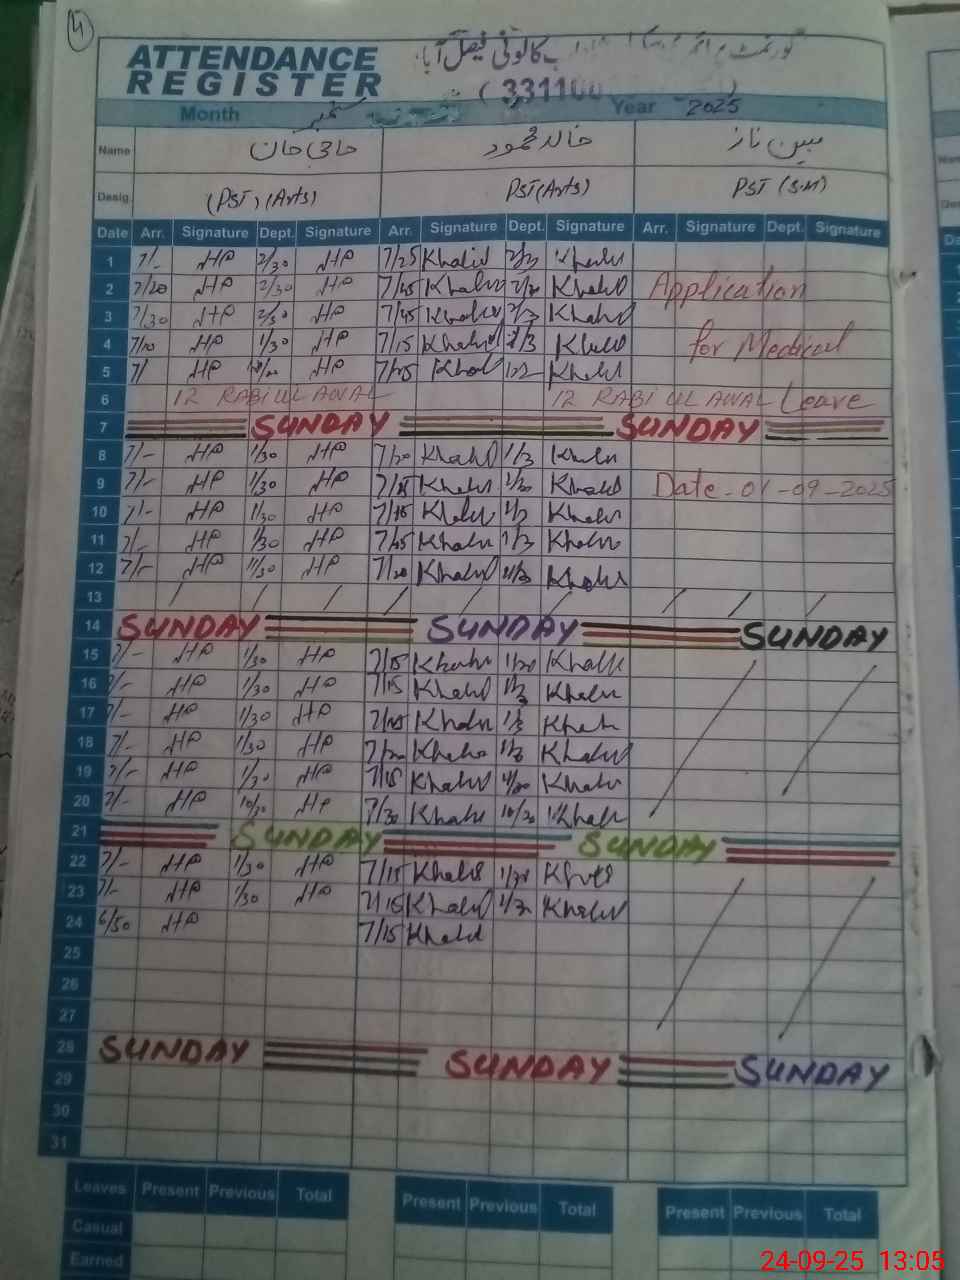 4
ATTENDANCE REGISTER
کالونی فیصل آباد
Month ستمبر Year 2025
Name حاجی جان خالد محمود مبین ناز
Desig. (PST) (Arts) PST (Arts) PST (S.M)
Date Arr. Signature Dept. Signature Arr. Signature Dept. Signature Arr. Signature Dept. Signature
1 7/- HP 2/30 HP 7/25 Khalid
2 7/20 HP 2/30 HP 7/45 Khalid Application
3 7/30 HP 2/30 HP 7/45 Khalid
4 7/10 HP 1/30 HP 7/15 Khalid for Medical
5 7/ HP HP Khalid
6 12 RABI UL AWAL 12 RABI UL AWAL Leave
7 SUNDAY SUNDAY
8 7/- HP 1/30 HP 7/20 Khalid 1/3 Khalid
9 7/- HP 1/30 HP Khalid Khalid Date - 01-09-2025
10 7/- HP 1/30 HP 7/15 Khalid Khalid
11 7/- HP 1/30 HP 7/45 Khalid 1/3 Khalid
12 7/- HP 11/30 HP 7/20 Khalid Khalid
13
14 SUNDAY SUNDAY SUNDAY
15 7/- HP 1/30 HP 7/15 Khalid 1/30 Khalid
16 7/- HP 1/30 HP 7/15 Khalid 1/3 Khalid
17 7/- HP 1/30 HP Khalid 1/3 Khalid
18 7/- HP 1/30 HP Khalid 1/3 Khalid
19 7/- HP 1/30 HP 7/15 Khalid Khalid
20 7/- HP 10/30 HP 7/30 Khalid 10/30 Khalid
21 SUNDAY SUNDAY
22 7/- HP 1/30 HP 7/15 Khalid 1/30 Khalid
23 7/- HP 1/30 HP 7/15 Khalid Khalid
24 6/50 HP 7/15 Khalid
25
26
27
28 SUNDAY SUNDAY SUNDAY
29
30
31
Leaves Present Previous Total Present Previous Total Present Previous Total
Casual
Earned
24-09-25 13:05